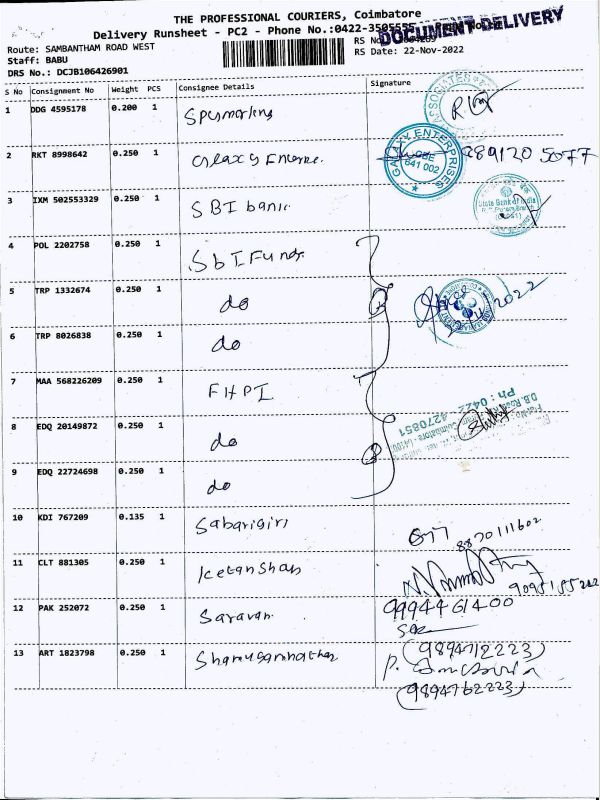 THE PROFESSIONAL COURIERS, Coimbatore
Delivery Runsheet - PC2 - Phone No.:0422-3505555
DOCUMENT DELIVERY
Route: SAMBANTHAM ROAD WEST
RS No
Staff: BABU
RS Date: 22-Nov-2022
DRS No.: DCJB106426901
S No Consignment No Weight PCS Consignee Details Signature
1 DDG 4595178 0.200 1
ASSOCIATES
2 RKT 8998642 0.250 1
GALAXY ENTERPRISES
641 002
989120 5077
3 IXM 502553329 0.250 1 SBI bank
State Bank of India
4 POL 2202758 0.250 1 SbI Funds
5 TRP 1332674 0.250 1 do
2022
6 TRP 8026838 0.250 1 do
7 MAA 568226209 0.250 1 FHPI
D.B. Road
Ph : 0422 4270851
8 EDQ 20149872 0.250 1 do
9 EDQ 22724698 0.250 1 do
10 KDI 767209 0.135 1 Sabarigiri
8870111602
11 CLT 881305 0.250 1 Ketanshah
12 PAK 252072 0.250 1 Saravan
9994461400
13 ART 1823798 0.250 1
(9894712223)
(9894762223)